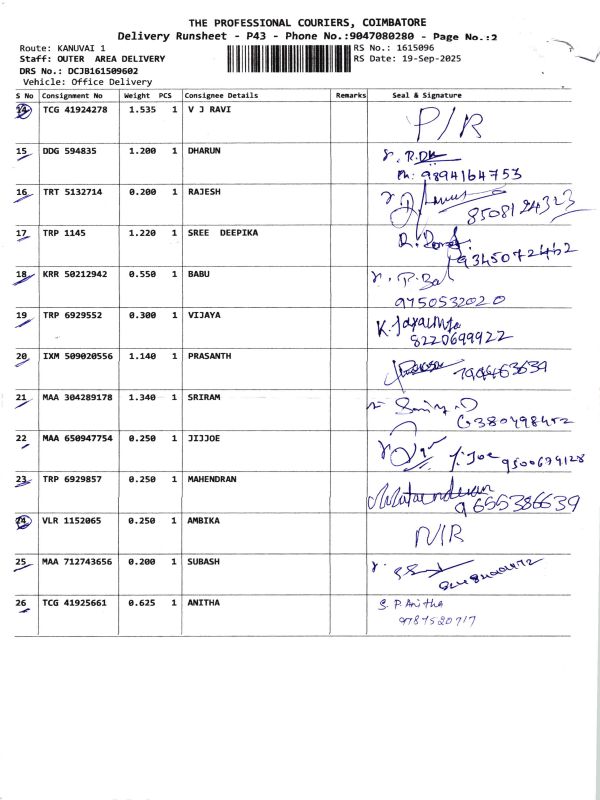 THE PROFESSIONAL COURIERS, COIMBATORE
Delivery Runsheet - P43 - Phone No.:9047080280 - Page No.:2
Route: KANUVAI 1 RS No.: 1615096
Staff: OUTER AREA DELIVERY RS Date: 19-Sep-2025
DRS No.: DCJB161509602
Vehicle: Office Delivery
S No Consignment No Weight PCS Consignee Details Remarks Seal & Signature
14 TCG 41924278 1.535 1 V J RAVI P/R
15 DDG 594835 1.200 1 DHARUN
Ph: 9894164753
16 TRT 5132714 0.200 1 RAJESH
8508124323
17 TRP 1145 1.220 1 SREE DEEPIKA
9345072462
18 KRR 50212942 0.550 1 BABU
9750532020
19 TRP 6929552 0.300 1 VIJAYA
8220699922
20 IXM 509020556 1.140 1 PRASANTH
21 MAA 304289178 1.340 1 SRIRAM
22 MAA 650947754 0.250 1 JIJJOE
Joe 9500679128
23 TRP 6929857 0.250 1 MAHENDRAN
9655386639
24 VLR 1152065 0.250 1 AMBIKA N/R
25 MAA 712743656 0.200 1 SUBASH
26 TCG 41925661 0.625 1 ANITHA S. P. Anitha
9787520717